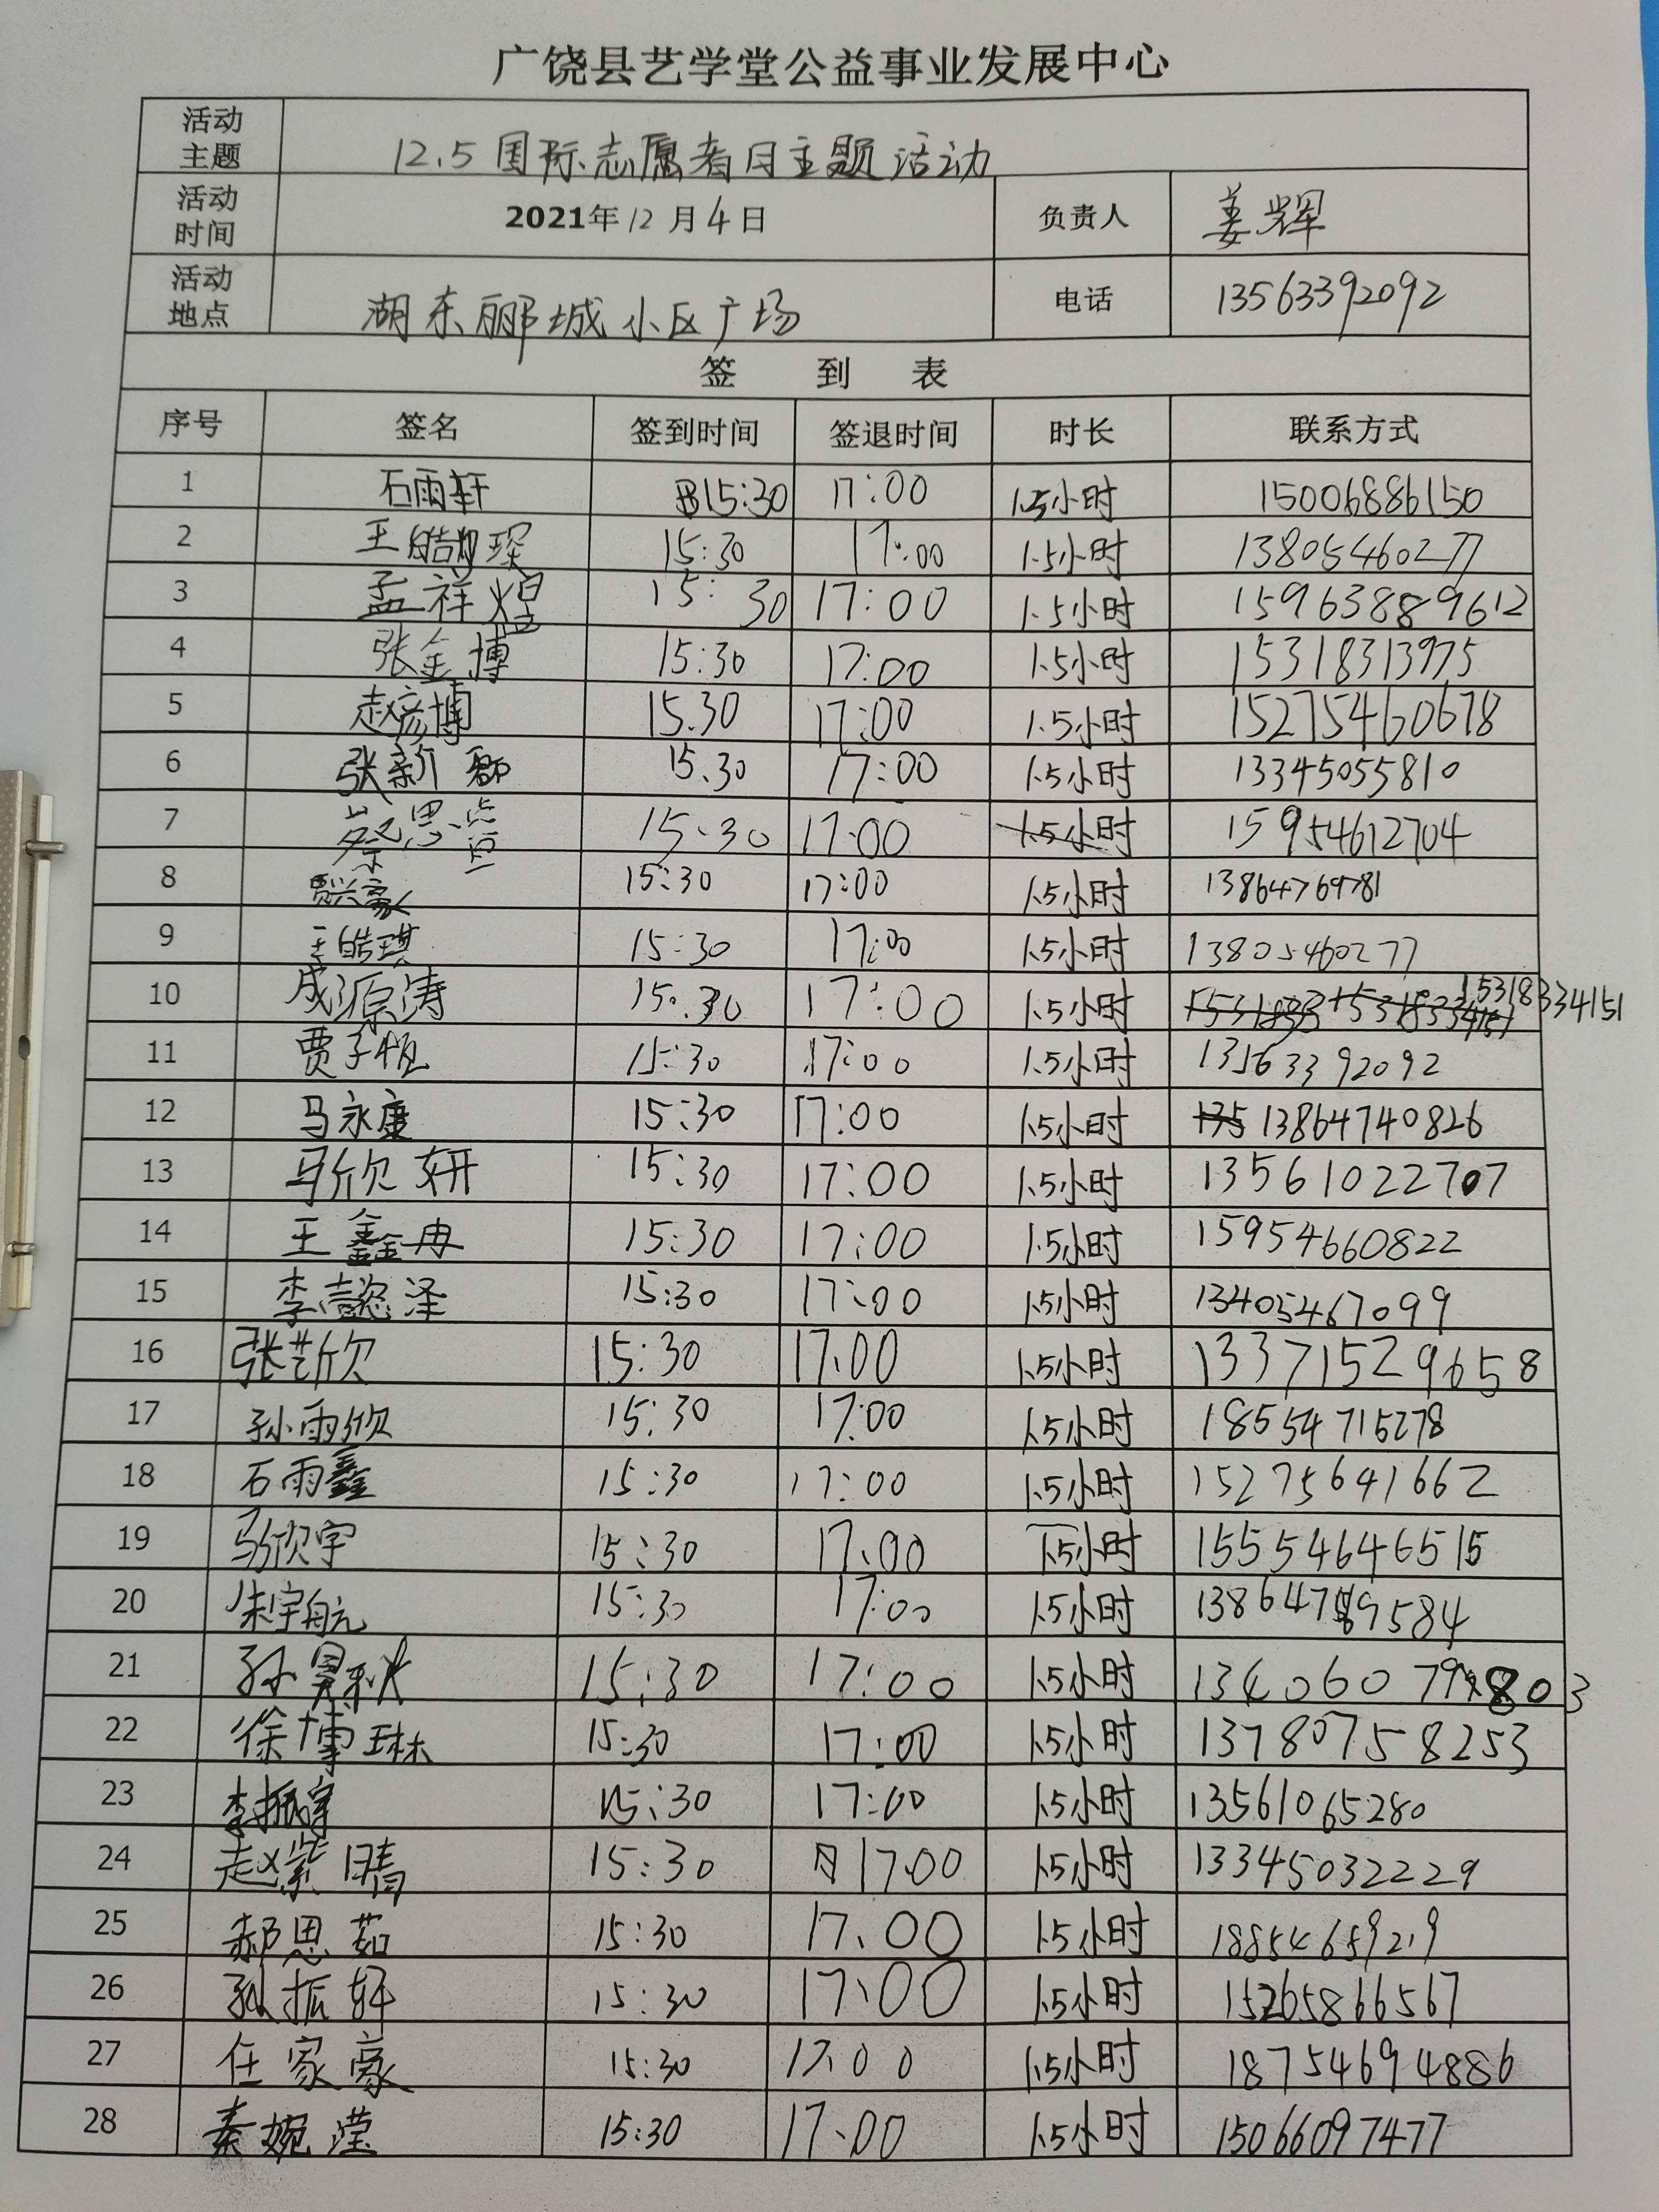 广饶县艺学堂公益事业发展中心
活动主题 12.5国际志愿者日主题活动
活动时间 2021年12月4日 负责人 姜辉
活动地点 湖东郦城小区广场 电话 13563392092
签到表
序号 签名 签到时间 签退时间 时长 联系方式
1 石雨轩 15:30 17:00 1.5小时 15006886150
2 王皓琛 15:30 17:00 1.5小时 13805460277
3 孟祥煜 15:30 17:00 1.5小时 15963889612
4 张金博 15:30 17:00 1.5小时 15318313975
5 赵彦博 15.30 17:00 1.5小时 15275460678
6 张新郡 15.30 17:00 1.5小时 13345055810
7 蔡思 15:30 17:00 1.5小时 15954612704
8 15:30 17:00 1.5小时 13864769781
9 王皓琪 15:30 17:00 1.5小时 13805460277
10 成源涛 15:30 17:00 1.5小时 15318334151
11 贾子恒 15:30 17:00 1.5小时 13563392092
12 马永康 15:30 17:00 1.5小时 13864740826
13 马欣妍 15:30 17:00 1.5小时 13561022707
14 王鑫冉 15:30 17:00 1.5小时 15954660822
15 李懿泽 15:30 17:00 1.5小时 13405467099
16 张艺欣 15:30 17:00 1.5小时 13371529658
17 孙雨欣 15:30 17:00 1.5小时 18554715278
18 石雨鑫 15:30 17:00 1.5小时 15275641662
19 马欣宇 15:30 17:00 1.5小时 15554646515
20 朱宇航 15:30 17:00 1.5小时
21 孙昊秋 15:30 17:00 1.5小时 13406079803
22 徐博琳 15:30 17:00 1.5小时 13780758253
23 李振宇 15:30 17:00 1.5小时 13561065280
24 赵紫晴 15:30 17:00 1.5小时 13345032229
25 郝思茹 15:30 17.00 1.5小时 18854659219
26 孙振轩 15:30 17:00 1.5小时 15265866567
27 任家豪 15:30 17:00 1.5小时 18754694886
28 秦婉滢 15:30 17.00 1.5小时 15066097477